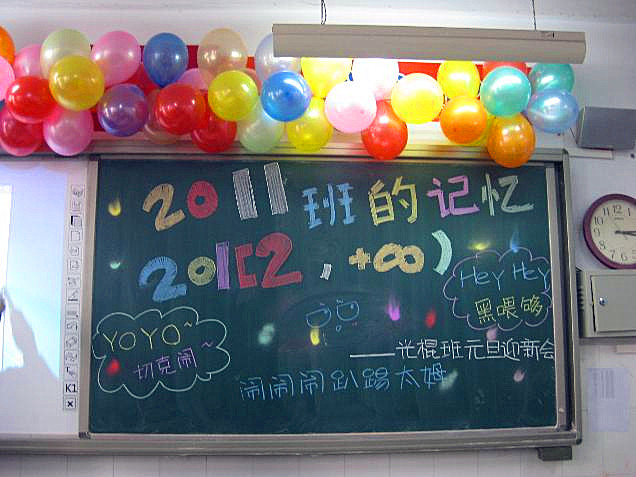 2011班的记忆
201[2,+∞)
Hey Hey
黑喂够
YOYO~
切克闹~
——光棍班元旦迎新会
闹闹闹趴踢太姆
K1